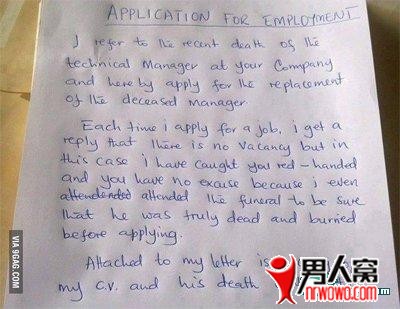 APPLICATION FOR EMPLOYMENT
I refer to the recent death of the
technical Manager at your Company
and hereby apply for the replacement
of the deceased manager
Each time i apply for a job, i get a
reply that there is no vacancy but in
this case i have caught you red-handed
and you have no excuse because i even
attended the funeral to be sure
that he was truly dead and burried
before applying.
Attached to my letter is
my C.V. and his death
VIA 9GAG.COM
男人窝
nrwowo.com